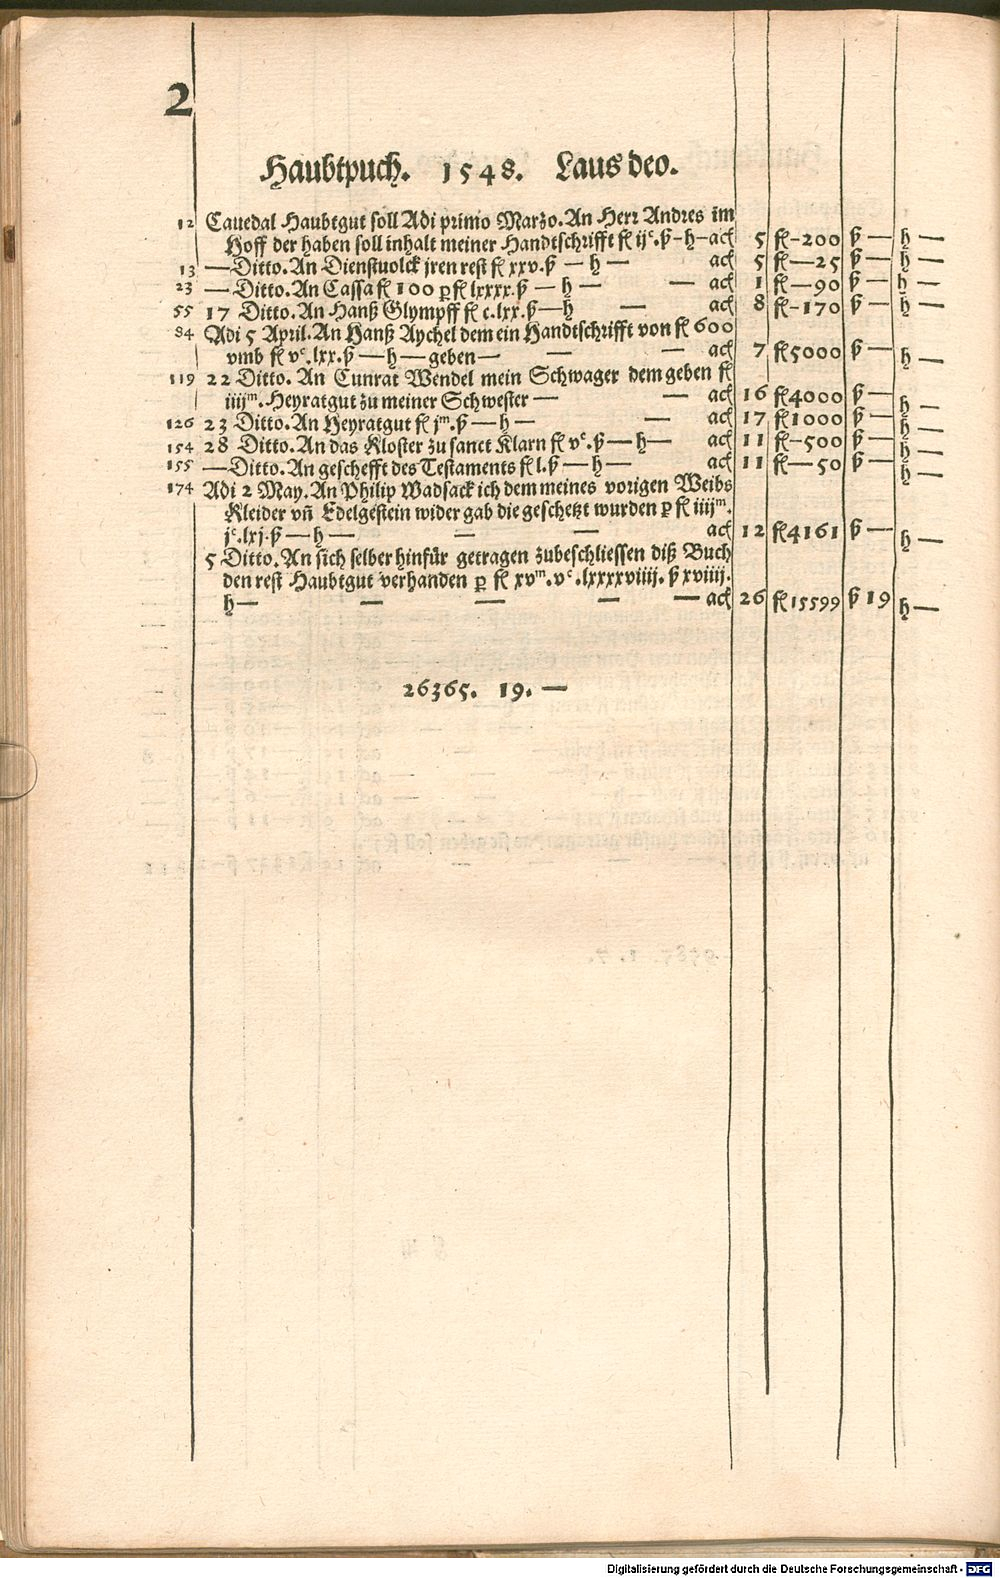 2
Haubtpuch. 1548. Laus deo.
12 Cauedal Haubtgut soll Adi primo Marzo. An Herr Andres im
Hoff der haben soll inhalt meiner Handtschrifft fl ijᶜ.ß-h-ac 5 fl-200 ß — h —
13 —Ditto. An Dienstuolck jren rest fl xxv.ß — h — ac 5 fl—25 ß — h —
23 —Ditto. An Cassa fl 100 p fl lxxxx.ß — h — — ac 1 fl—90 ß — h —
55 17 Ditto. An Hanß Glympff fl c.lxx.ß—h — ac 8 fl-170 ß — h —
84 Adi 5 April. An Hanß Aychel dem ein Handtschrifft von fl 600
vmb fl vᶜ.lxx.ß — h — geben — — — ac 7 fl5000 ß — h —
119 22 Ditto. An Cunrat Wendel mein Schwager dem geben fl
iiijᵐ. Heyratgut zu meiner Schwester — — ac 16 fl4000 ß — h —
126 23 Ditto. An Heyratgut fl jᵐ.ß — h — — ac 17 fl1000 ß — h —
154 28 Ditto. An das Kloster zu sanct Klarn fl vᶜ.ß — h — ac 11 fl-500 ß — h —
155 —Ditto. An geschefft des Testaments fl l.ß — h — ac 11 fl—50 ß — h —
174 Adi 2 May. An Philip Wadsack ich dem meines vorigen Weibs
Kleider vñ Edelgestein wider gab die geschetzt wurden p fl iiijᵐ.
jᶜ.lxj.ß — h — — — ac 12 fl4161 ß — h —
5 Ditto. An sich selber hinfür getragen zubeschliessen diß Buch
den rest Haubtgut verhanden p fl xvᵐ.vᶜ.lxxxxviiij.ß xviiij.
h — — — — — ac 26 fl15599 ß 19 h —
26365. 19. —
Digitalisierung gefördert durch die Deutsche Forschungsgemeinschaft - DFG